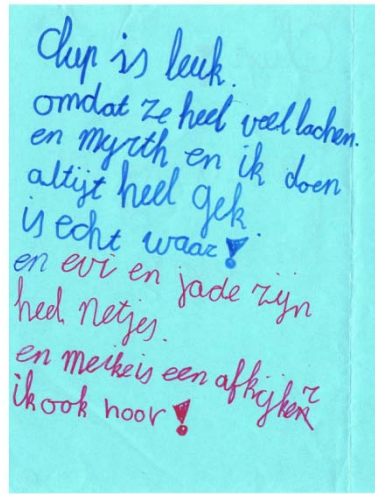 Clup is leuk.
omdat ze heel veel lachen.
en myrth en ik doen
altijt heel gek.
is echt waar!
en evi en jade zijn
heel netjes.
en meike is een afkijker
ik ook hoor!